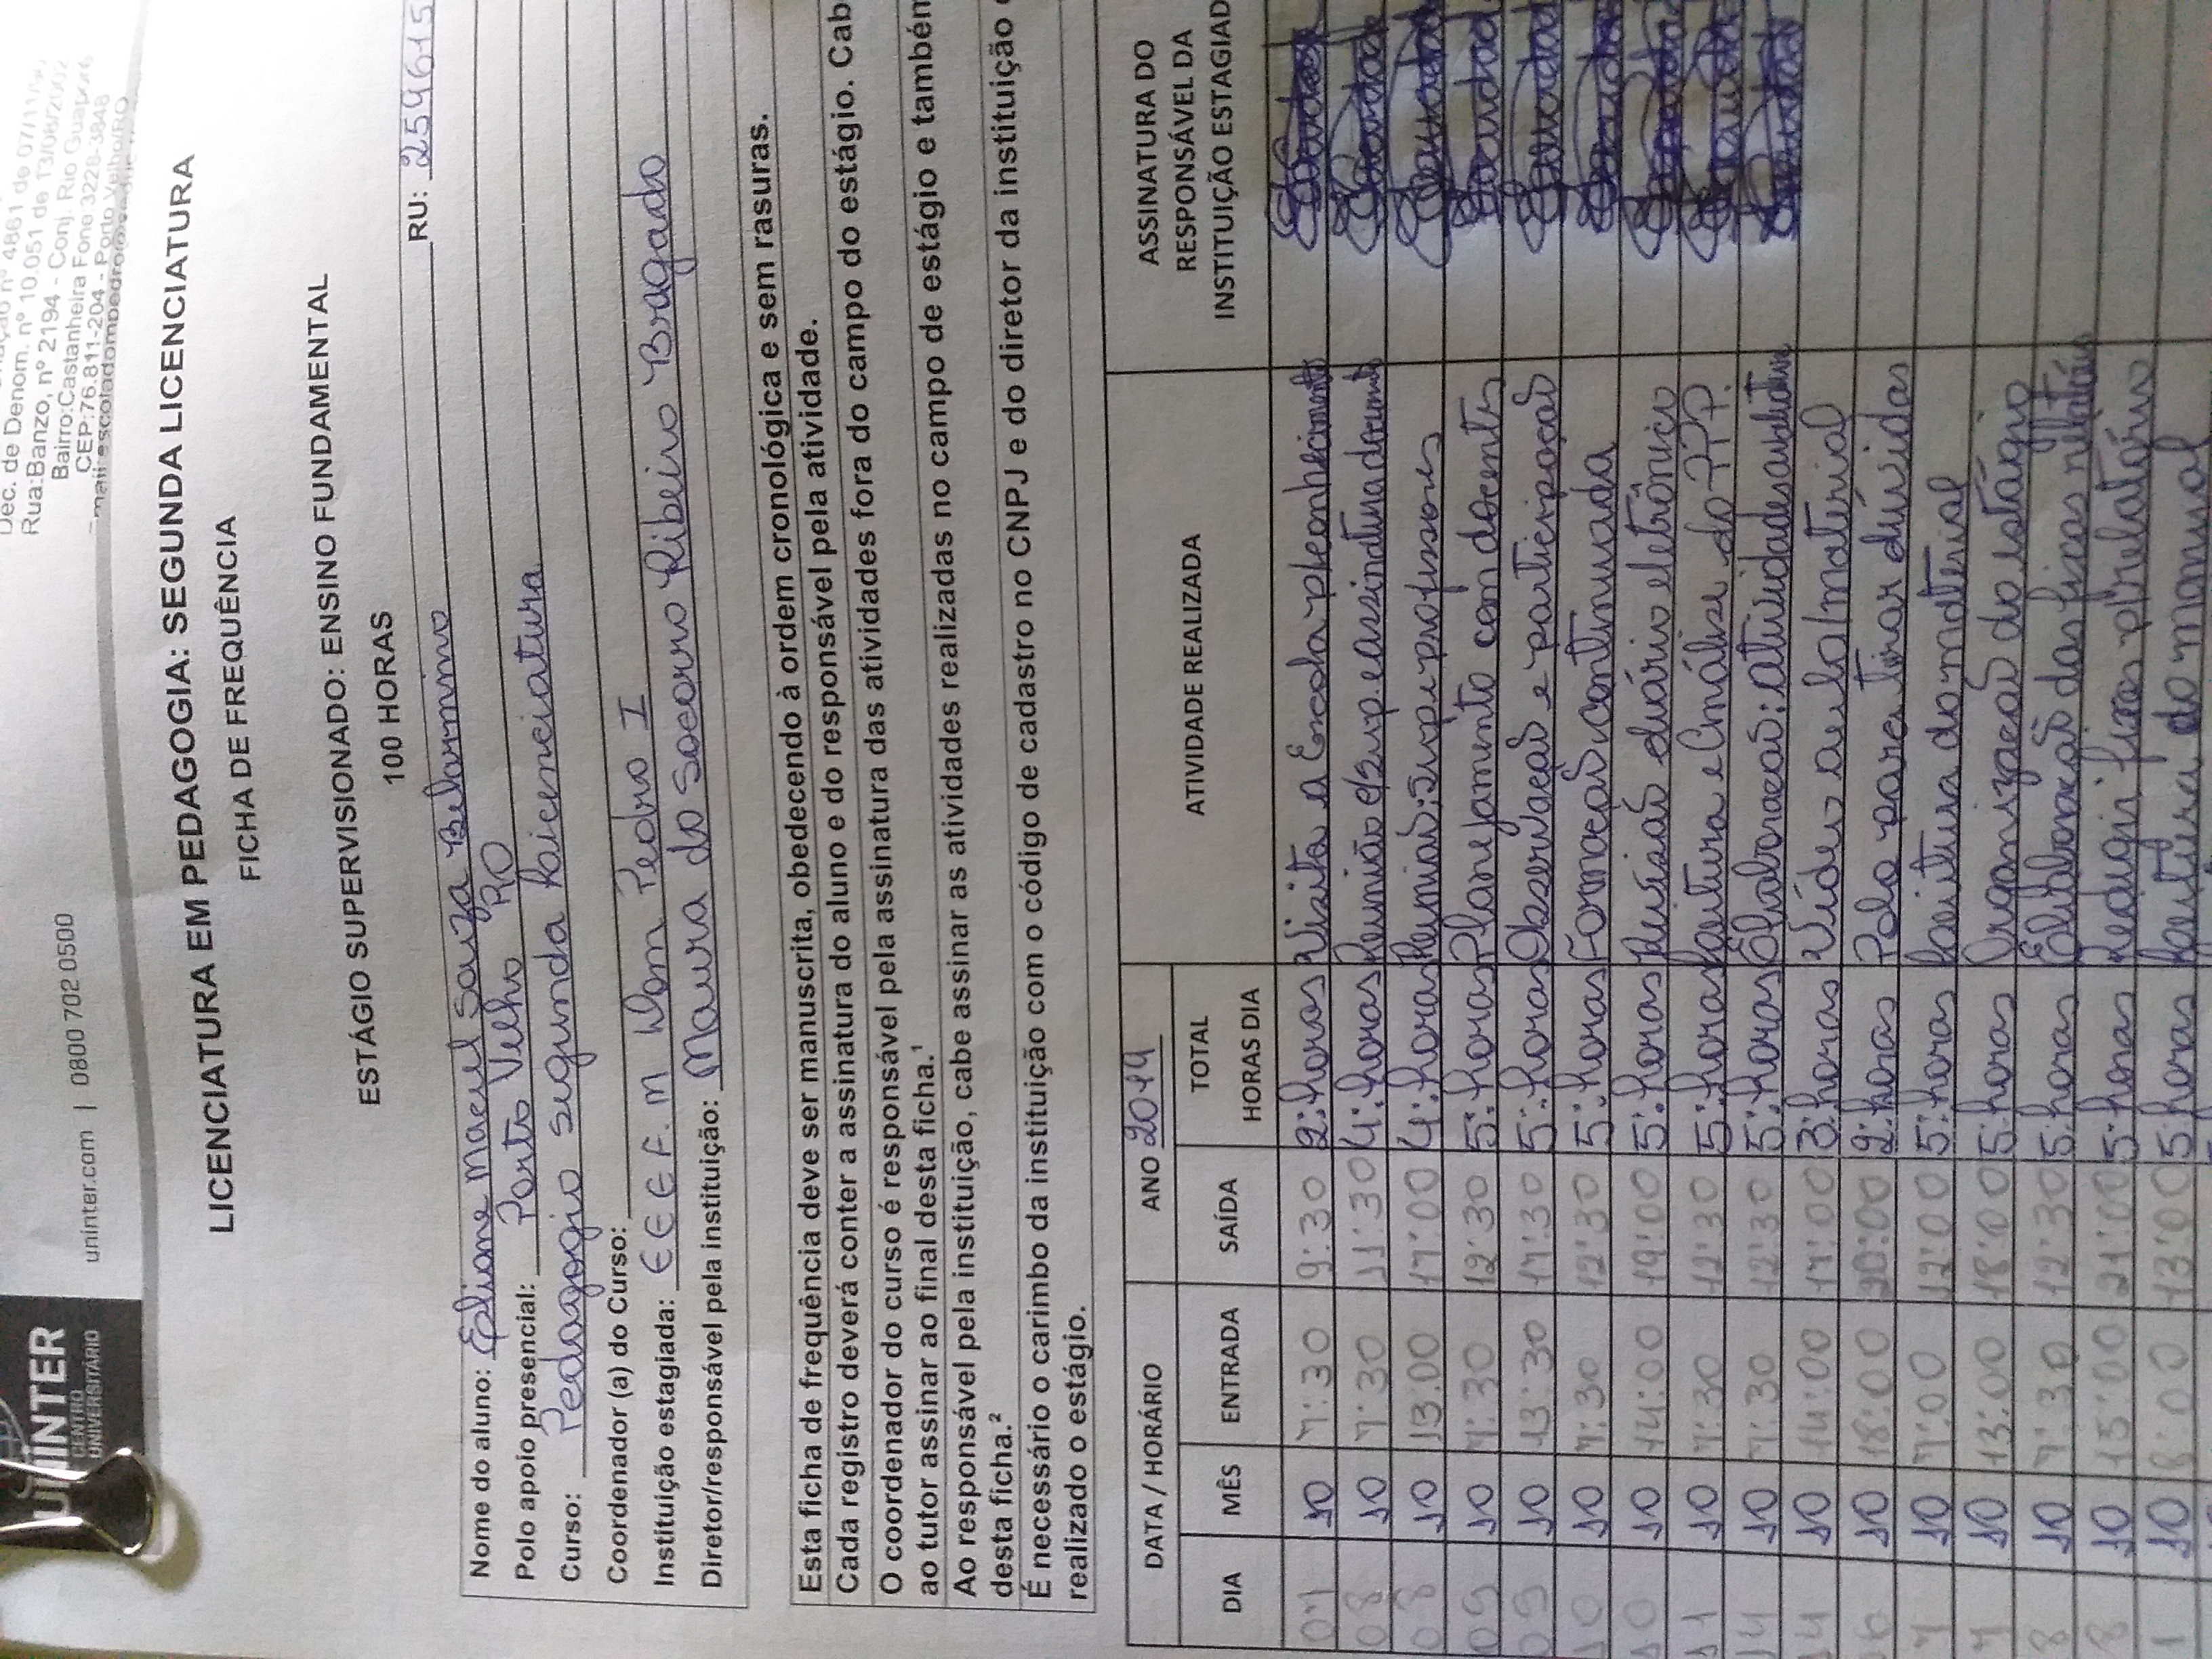 Dec. de Denom. nº 10.051 de 13/08/2002
Rua:Banzo, nº 2194 - Conj. Rio Guaporé
Bairro:Castanheira Fone:3228-3848
CEP:76.811-204 - Porto Velho/RO
UNINTER
CENTRO
UNIVERSITÁRIO
uninter.com | 0800 702 0500
LICENCIATURA EM PEDAGOGIA: SEGUNDA LICENCIATURA
FICHA DE FREQUÊNCIA
ESTÁGIO SUPERVISIONADO: ENSINO FUNDAMENTAL
100 HORAS
Nome do aluno: Eliane Maciel Souza Belarmino RU: 2596615
Polo apoio presencial: Porto Velho RO
Curso: Pedagogia segunda Licenciatura
Coordenador (a) do Curso:
Instituição estagiada: E E E F. M Dom Pedro I
Diretor/responsável pela instituição: Maura do Socorro Ribeiro Bragado
Esta ficha de frequência deve ser manuscrita, obedecendo à ordem cronológica e sem rasuras.
Cada registro deverá conter a assinatura do aluno e do responsável pela atividade.
O coordenador do curso é responsável pela assinatura das atividades fora do campo do estágio. Cab
ao tutor assinar ao final desta ficha.¹
Ao responsável pela instituição, cabe assinar as atividades realizadas no campo de estágio e também
desta ficha.²
É necessário o carimbo da instituição com o código de cadastro no CNPJ e do diretor da instituição
realizado o estágio.
DATA / HORÁRIO ANO 2019 ATIVIDADE REALIZADA ASSINATURA DO RESPONSÁVEL DA INSTITUIÇÃO ESTAGIAD
DIA MÊS ENTRADA SAÍDA TOTAL HORAS DIA
07 10 7:30 9:30 2:horas Visita a Escola p/conhecimento
08 10 7:30 11:30 4:horas Reunião c/Sup e assinatura documento
08 10 13:00 17:00 4:horas Reunião: Sup e professores
09 10 7:30 12:30 5:horas Planejamento com docentes
09 10 13:30 17:30 5:horas Observação e participação
10 10 7:30 12:30 5:horas Formação continuada
10 10 14:00 19:00 5:horas Revisão diário eletrônico
11 10 7:30 12:30 5:horas Leitura e Análise do PPP.
14 10 7:30 12:30 5:horas Elaboração: atividades avaliativas
14 10 14:00 17:00 3:horas Vídeo aula/material
16 10 18:00 20:00 2:horas Polo para tirar dúvidas
7 10 7:00 12:00 5:horas Leitura do material
7 10 13:00 18:00 5:horas Organização do estágio
8 10 7:30 12:30 5:horas Elaboração das fichas relatório
8 10 15:00 21:00 5:horas Redigir fichas p/relatório
1 10 8:00 13:00 5 horas Leitura do manual